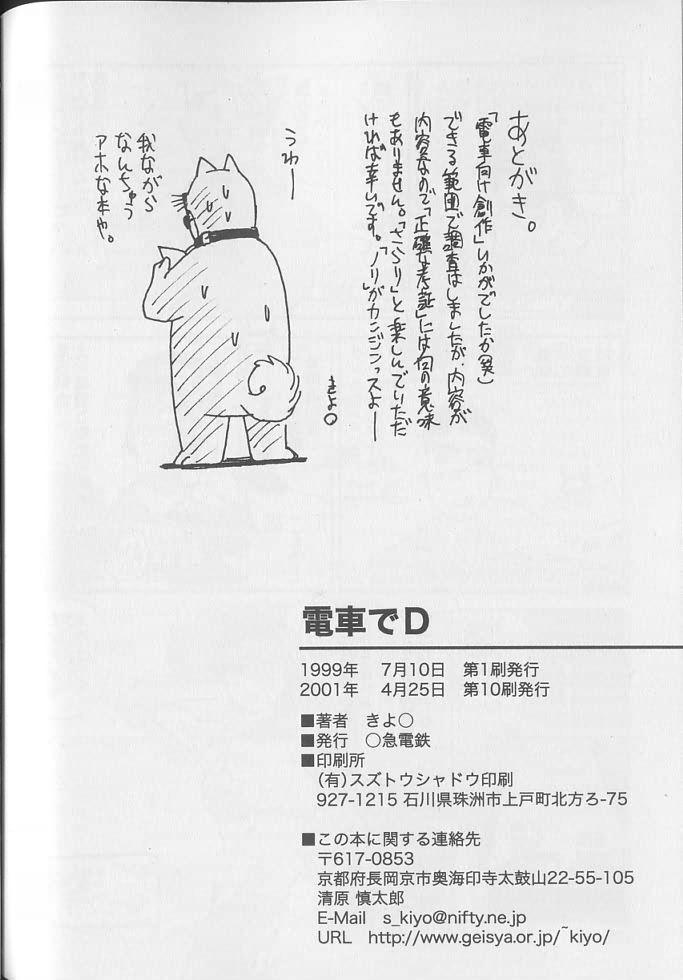 あとがき。
「電車向け創作」いかがでしたか(笑)
できる範囲で調査はしましたが、内容が
内容なので「正確な考証」には何の意味
もありません。「さらり」と楽しんでいただ
ければ幸いです。「ノリ」がカンジンっスよー
きよ〇
うわー
我ながら
なんちゅう
アホな本や。
電車でD
1999年 7月10日 第1刷発行
2001年 4月25日 第10刷発行
■著者 きよ〇
■発行 〇急電鉄
■印刷所
(有)スズトウシャドウ印刷
927-1215 石川県珠洲市上戸町北方ろ-75
■この本に関する連絡先
〒617-0853
京都府長岡京市奥海印寺太鼓山22-55-105
清原 慎太郎
E-Mail s_kiyo@nifty.ne.jp
URL http://www.geisya.or.jp/~kiyo/